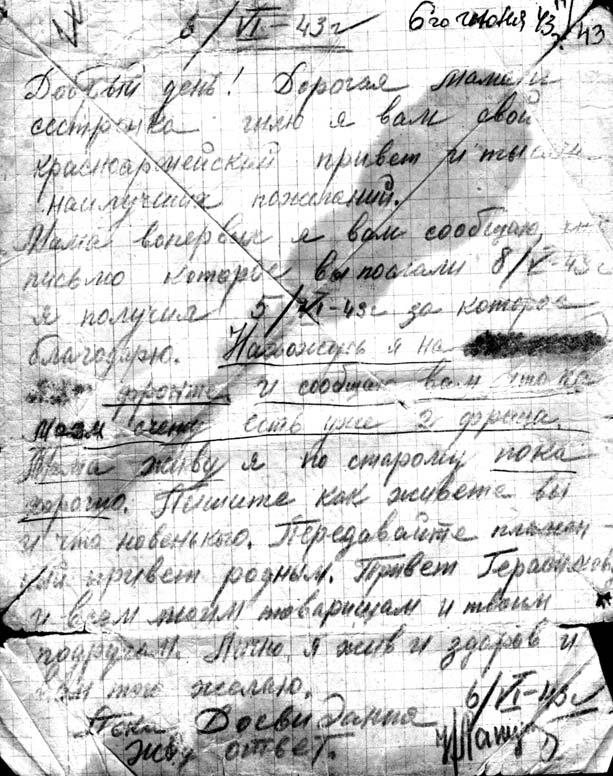 6/VI-43г 6го июня 43 г. 43
Добрый день! Дорогая мама и
сестронка шлю я вам свой
красноармейский привет и тысячи
наилучших пожеланий.
Мама вопервых я вам сообщаю, что
письмо которое вы послали 8/V-43г
я получил 5/VI-43г за которое
благодарю. Нахожусь я на
фронте и сообщаю вам что на
моэм счету есть уже 2 фрица.
Мама живу я по старому пока
хорошо. Пишите как живете вы
и что новенького. Передавайте пламен-
ный привет родным. Привет Герасимовым
и всем моим товарищам и твоим
подругам. Лично я жив и здоров и
вам того желаю.
6/VI-43г
Пока Досвидания
Жду ответ.